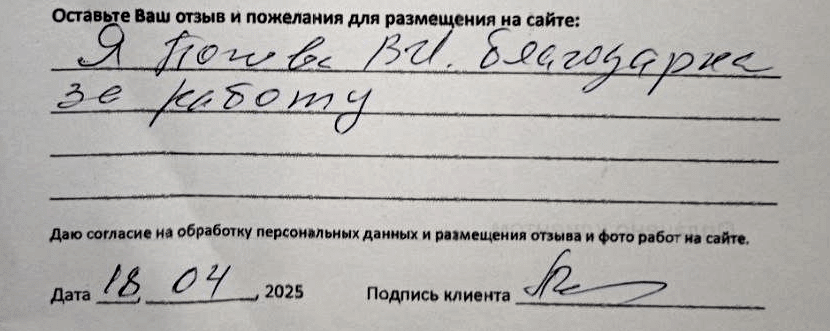 Оставьте Ваш отзыв и пожелания для размещения на сайте:
Я В.И. благодарна
за работу
Даю согласие на обработку персональных данных и размещения отзыва и фото работ на сайте.
Дата 18 04, 2025 Подпись клиента